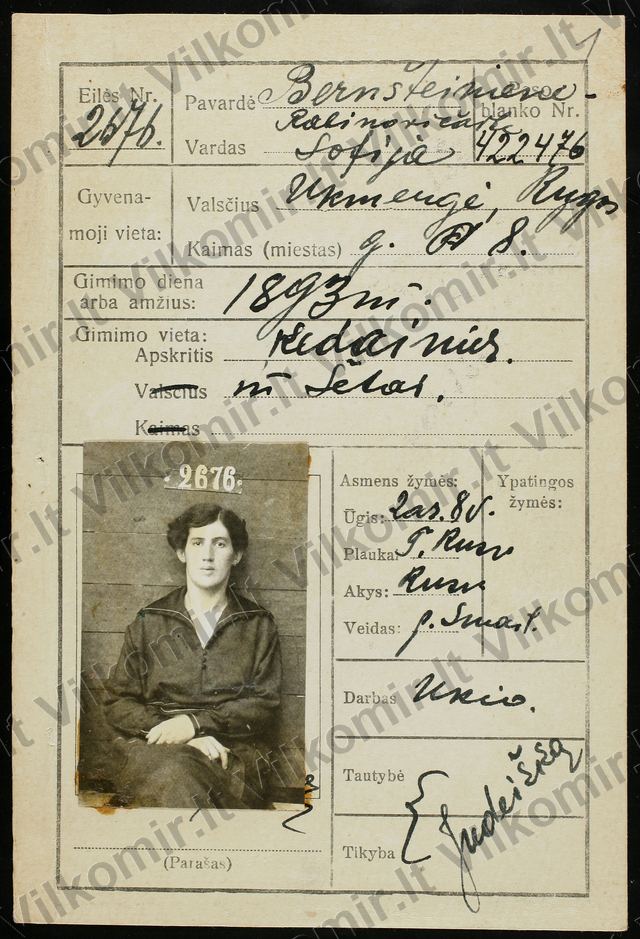 Eilės Nr.
2676.
Pavardė Bernšteinienė-
Rabinovičaitė
Vardas Sofija
Paso blanko Nr.
422476
Gyvena-
moji vieta:
Valsčius Ukmergė,
Kaimas (miestas) g. 8.
Gimimo diena
arba amžius: 1893 m.
Gimimo vieta:
Apskritis Kėdainių.
Valsčius m. Šėtai.
Kaimas
2676.
Asmens žymės:
Ūgis: 2 ar. 8 v.
Plaukai T. Rusv
Akys: Rusv
Veidas: p. Smart.
Ypatingos
žymės:
Darbas Ūkio.
Tautybė
Tikyba
Judeiška
(Parašas)
Vilkomir.lt